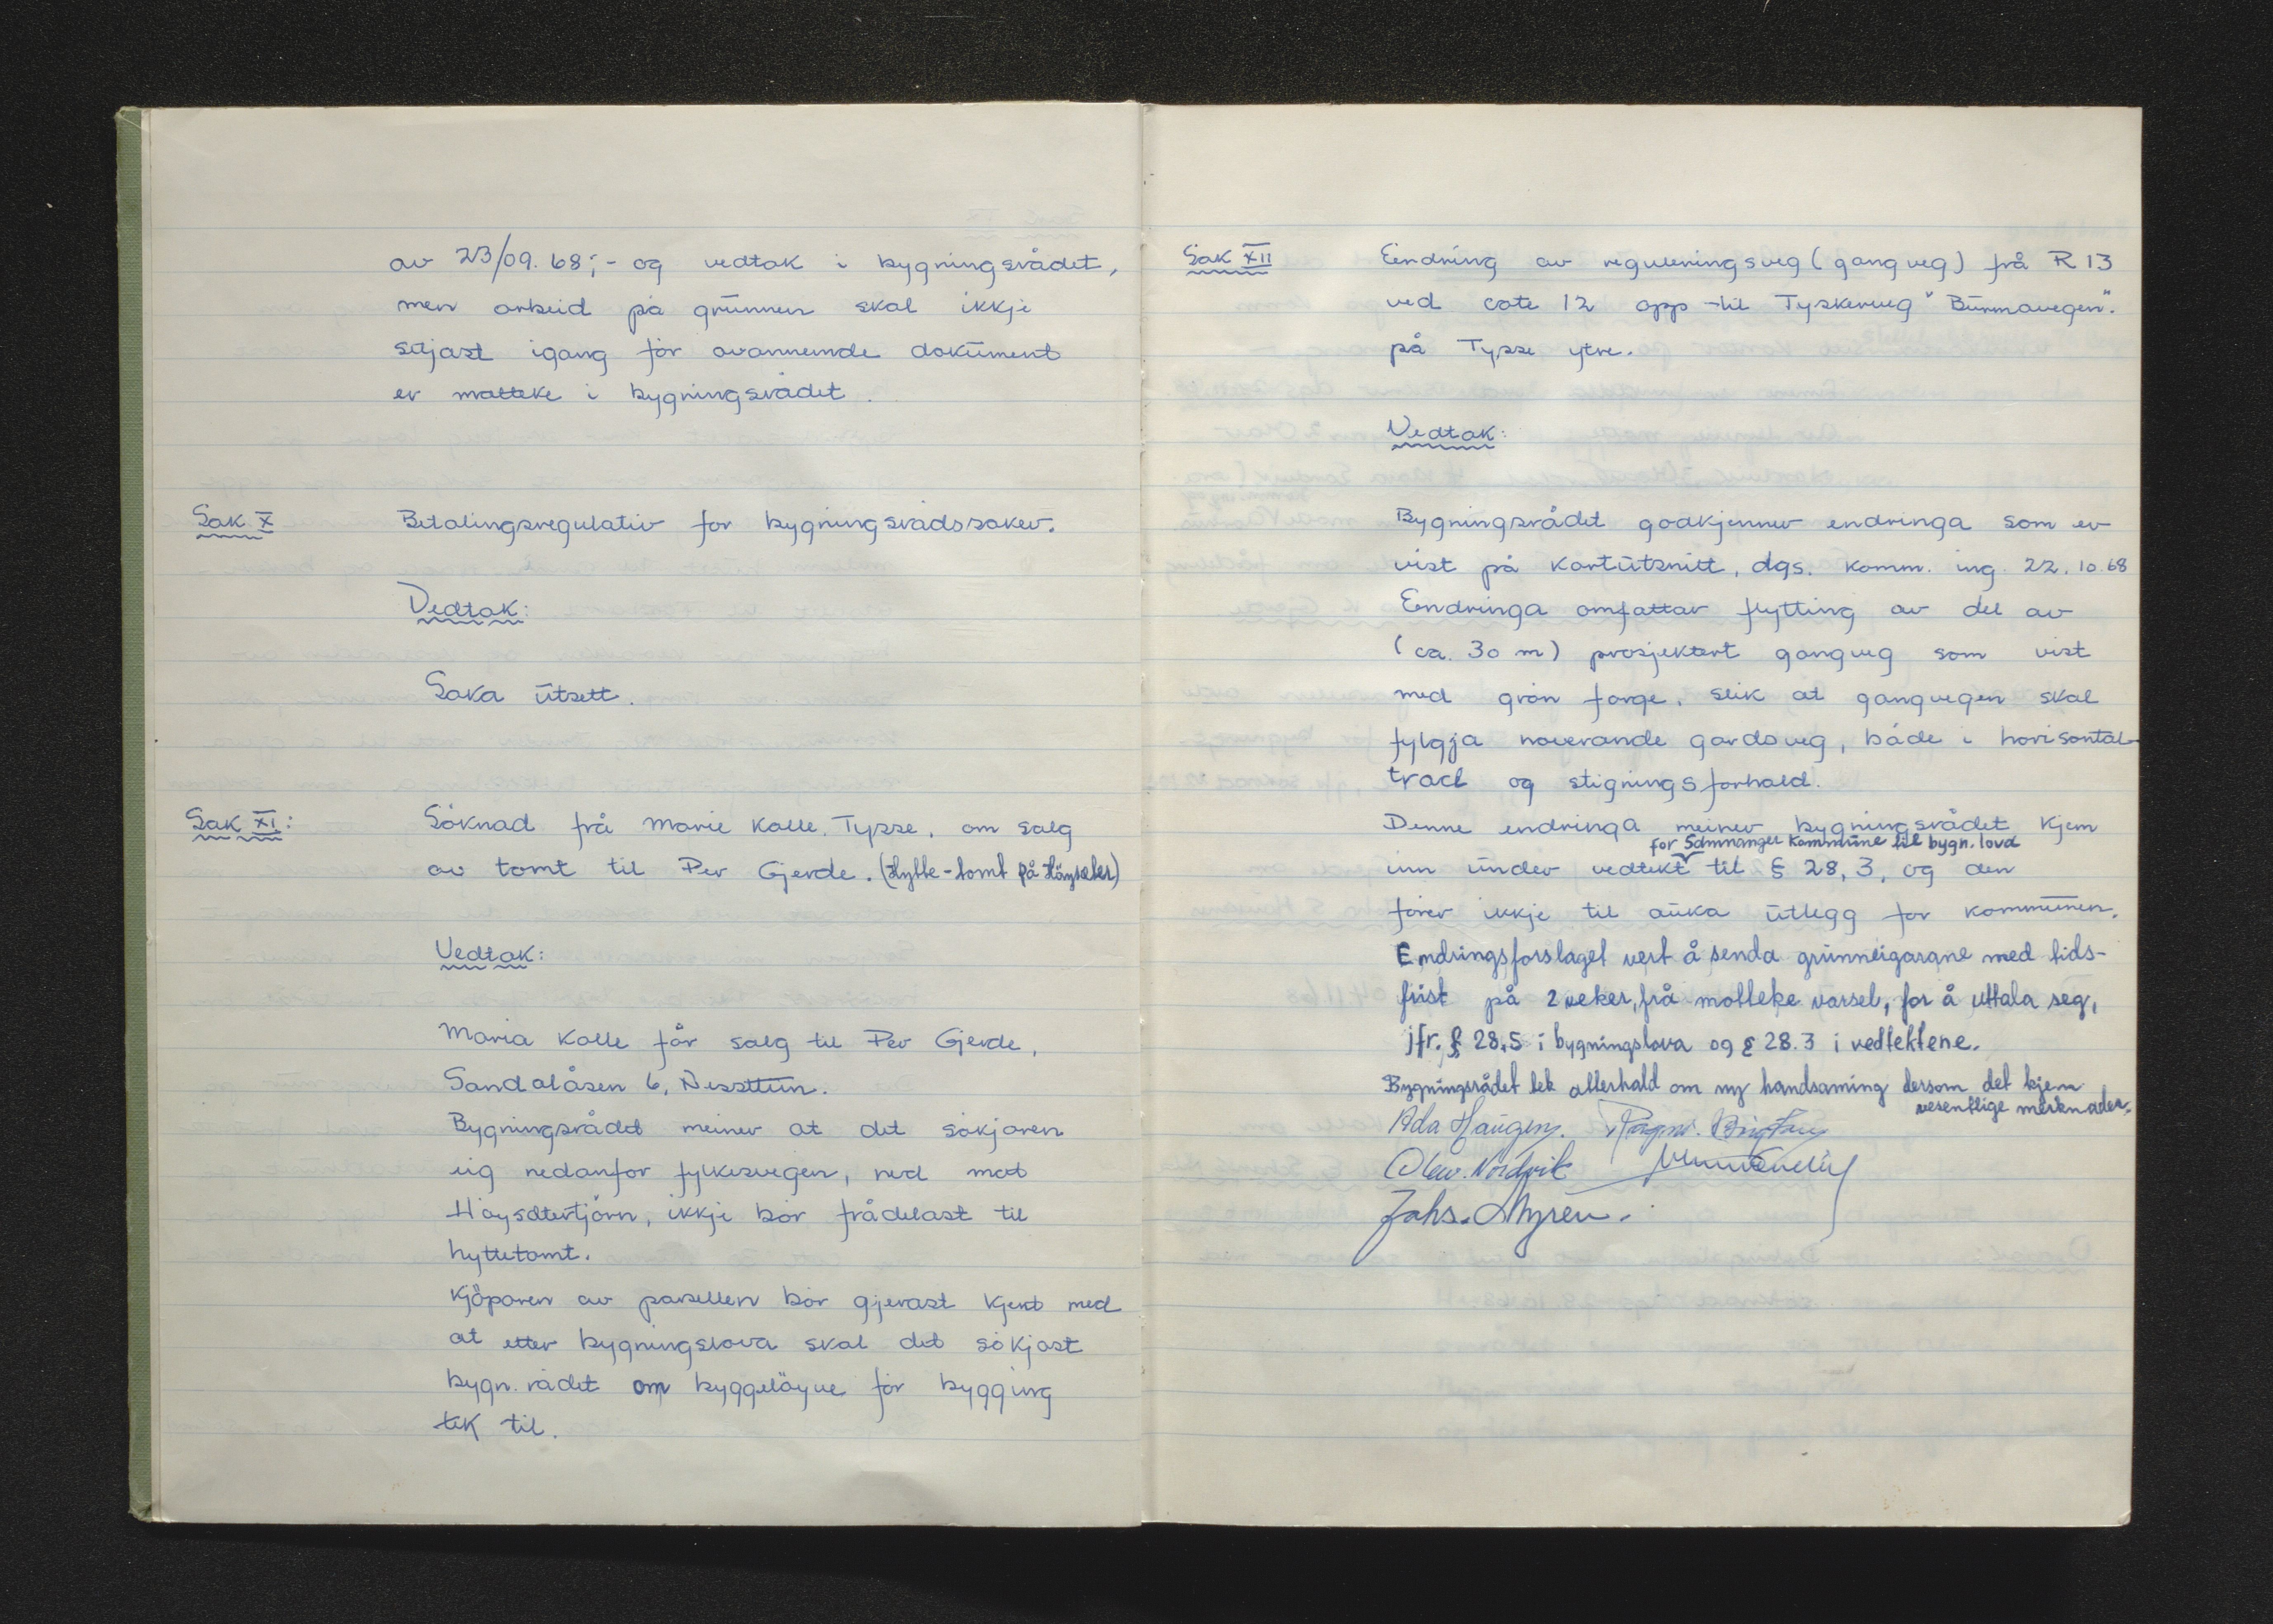 av 23/09.68;- og vedtak i bygningsrådet,
men arbeid på grunnen skal ikkje
setjast igang før ovannemde dokument
er motteke i bygningsrådet.
Sak X Betalingsregulativ for bygningsrådssaker.
Vedtak:
Saka utsett.
Sak XI: Söknad frå Marie Kalle, Tysse, om salg
av tomt til Per Gjerde. (Hytte-tomt på Höyseter)
Vedtak:
Maria Kolle får salg til Per Gjerde,
Sandalåsen 6, Nesttun.
Bygningsrådet meiner at det sökjaren
eig nedanfor fylkesvegen, ned mot
Höysetertjörn, ikkje bör frådelast til
hyttetomt.
Kjöparen av parsellen bör gjerast kjent med
at etter bygningslova skal det sökjast
bygn.rådet om byggelöyve för bygging
tek til.
Sak XII Endring av reguleringsveg (gangveg) frå R 13
ved cote 12 opp til Tyskerveg "Burmavegen".
på Tysse ytre.
Vedtak:
Bygningsrådet godkjenner endringa som er
vist på kartutsnitt, dgs. komm. ing. 22.10.68
Endringa omfattar flytting av del av
(ca. 30 m) prosjektert gangveg som vist
med grön farge, slik at gangvegen skal
fylgja noverande gardsveg, både i horisontal-
tracé og stigningsforhald.
Denne endringa meiner bygningsrådet kjem
for Samnanger kommune til bygn.lova
inn under vedtekt til § 28,3, og den
förer ikkje til auka utlegg for kommunen.
Endringsforslaget vert å senda grunneigarane med tids-
frist på 2 veker, frå motteke varsel, for å uttala seg,
jfr. § 28.5 i bygningslova og § 28.3 i vedtektene.
Bygningsrådet tek atterhald om ny handsaming dersom det kjem
vesentlige merknader.
Ada Haugen. Ragnv.
Olav Nordvik
Johs. Myren.